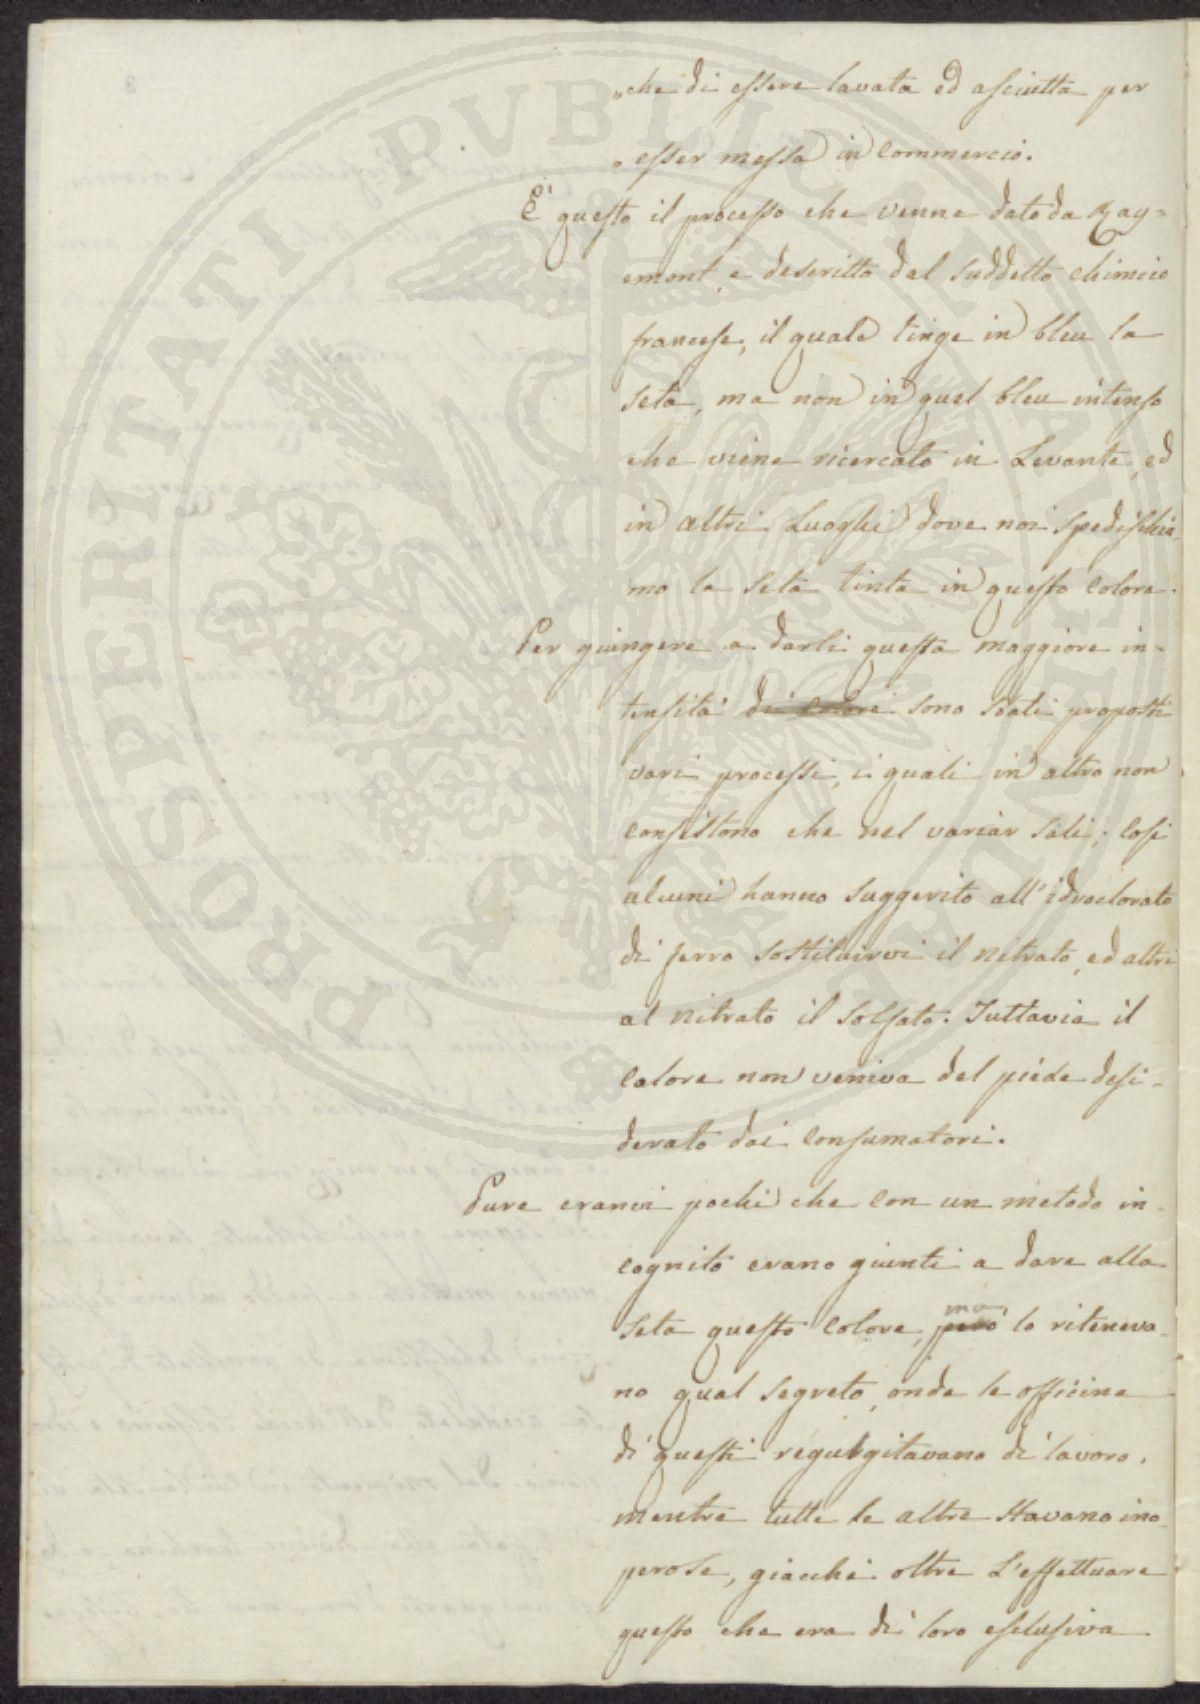 „che di essere lavata ed asciutta per
„esser messa in commercio.
È questo il processo che venne dato da Ray=
emont, e descritto dal suddetto chimico
francese, il quale tinge in bleu la
seta, ma non in quel bleu intenso
che viene ricercato in Levante, ed
in altri Luoghi dove noi spedischia
mo la seta tinta in questo colore.
Per giungere a darli questa maggiore in-
tensità di colore sono stati proposti
vari processi, i quali in altro non
consistono che nel variar sali; così
alcuni hanno suggerito all'idroclorato
di ferro sostituirvi il nitrato, ed altri
al nitrato il solfato. Tuttavia il
colore non veniva del piede desi-
derato dai consumatori.
Pure eranvi pochi che con un metodo in-
cognito erano giunti a dare alla
seta questo colore, però ma lo riteneva-
no qual segreto, onde le officine
di questi regurgitavano di lavoro,
mentre tutte le altre stavano ino-
perose, giacchè oltre l'effettuare
questo che era di loro esclusiva
PROSPERITATI PUBLICAE